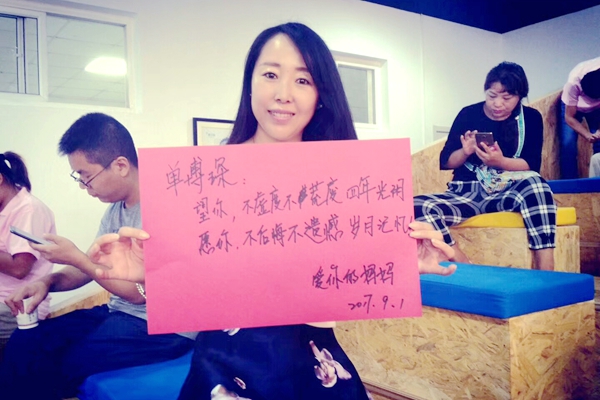 单博琛：
望你，不虚度不荒度 四年光阴
愿你，不后悔不遗憾 岁月记忆
爱你的妈妈
2017.9.1